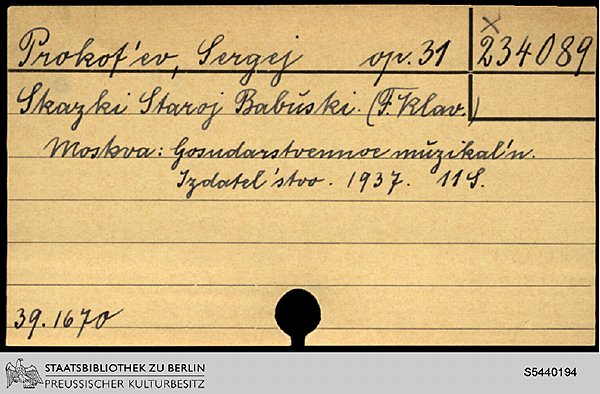 Prokof'ev, Sergej op. 31
x
234089
Skazki Staroj Babuški. (F. Klav.)
Moskva: Gosudarstvennoe muzikal'n.
Izdatel'stvo. 1937. 11 S.
39.1670
STAATSBIBLIOTHEK ZU BERLIN
PREUSSISCHER KULTURBESITZ
S5440194